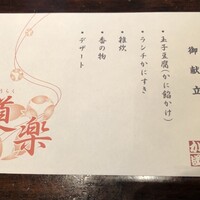 御献立
・玉子豆腐(かに餡かけ)
・ランチかにすき
・雑炊
・香の物
・デザート
道楽